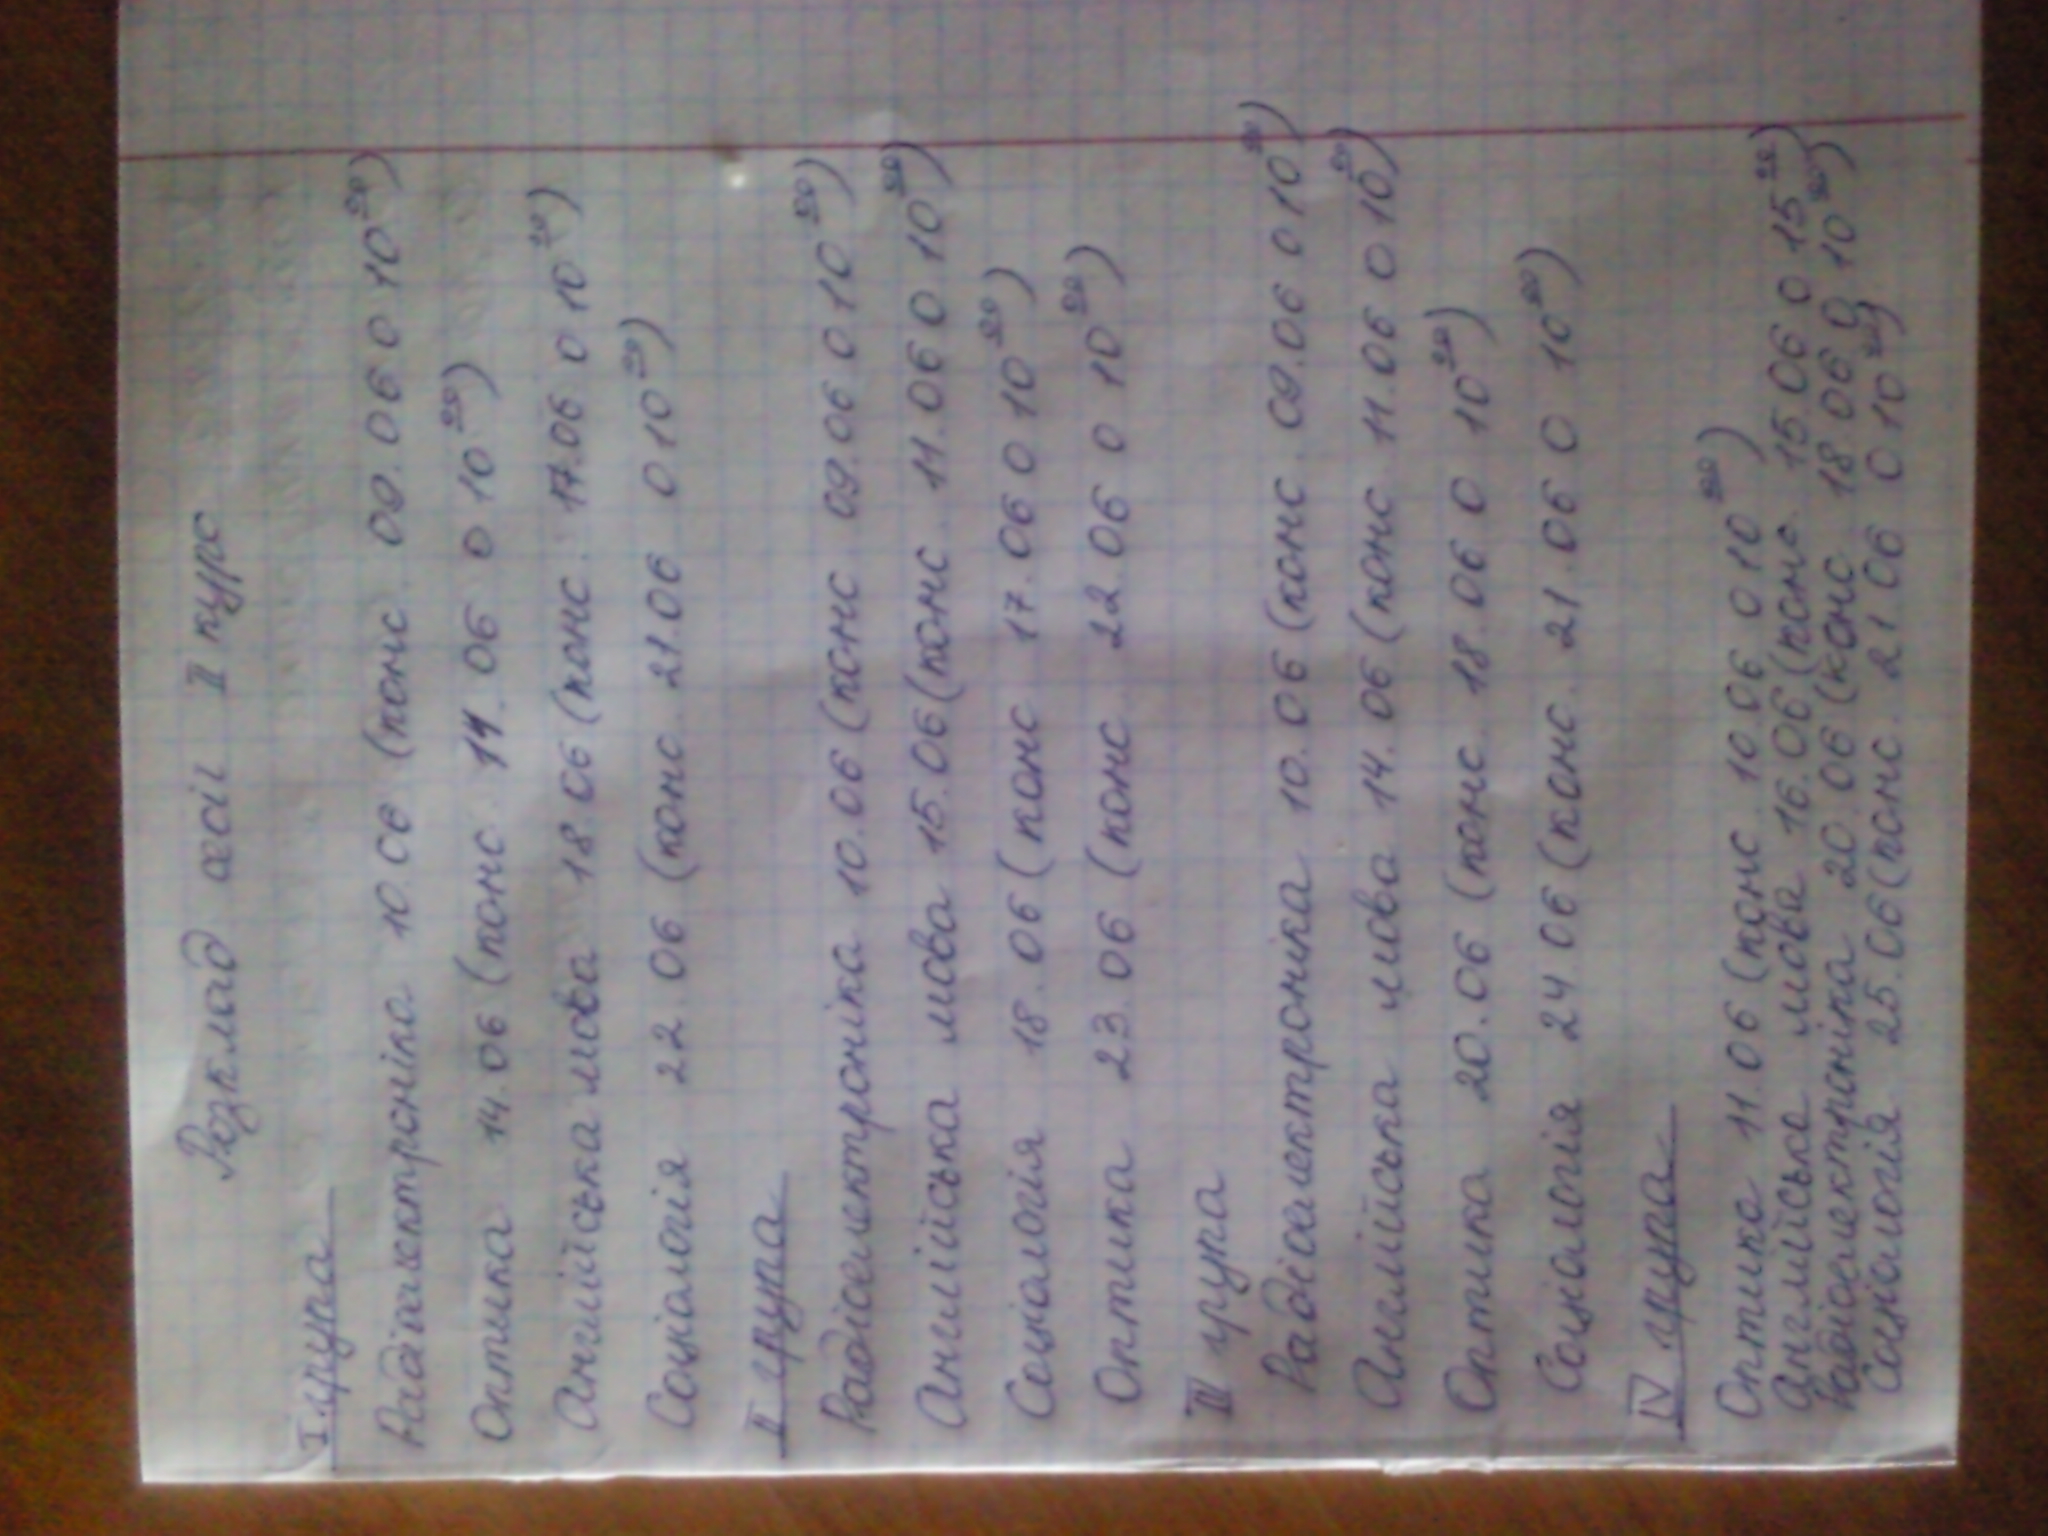 Розклад сесії II курс
I група
Радіоелектроніка 10.06 (конс. 09.06 о 10⁰⁰)
Оптика 14.06 (конс. 11.06 о 10⁰⁰)
Англійська мова 18.06 (конс. 17.06 о 10⁰⁰)
Соціологія 22.06 (конс. 21.06 о 10⁰⁰)
II група
Радіоелектроніка 10.06 (конс 09.06 о 10⁰⁰)
Англійська мова 15.06 (конс. 11.06 о 10⁰⁰)
Соціологія 18.06 (конс 17.06 о 10⁰⁰)
Оптика 23.06 (конс. 22.06 о 10⁰⁰)
III група
Радіоелектроніка 10.06 (конс. 09.06 о 10⁰⁰)
Англійська мова 14.06 (конс 11.06 о 10⁰⁰)
Оптика 20.06 (конс. 18.06 о 10⁰⁰)
Соціологія 24 06 (конс. 21.06 о 10⁰⁰)
IV група
Оптика 11.06 (конс. 10 06 о 10⁰⁰)
Англійська мова 16.06 (конс. 15.06 о 15⁰⁰)
Радіоелектроніка 20.06 (конс 18 06 о 10⁰⁰)
Соціологія 25.06 (конс. 21 06 о 10⁰⁰)